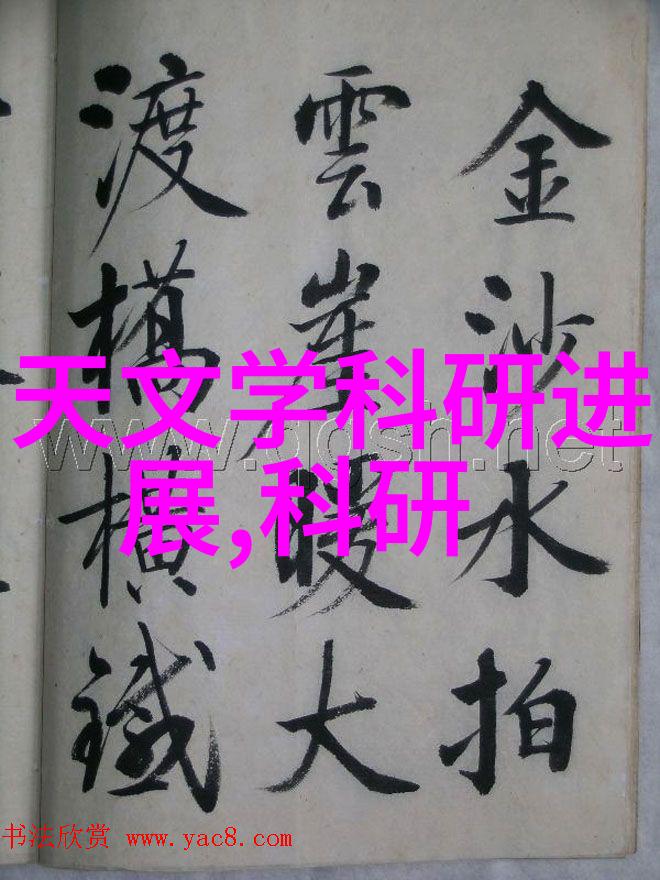 金沙水拍
雲崖暖大
渡橋橫鐵
天文学科研进
展,科研
www.qqsh.net
书法欣赏 www.yac8.com